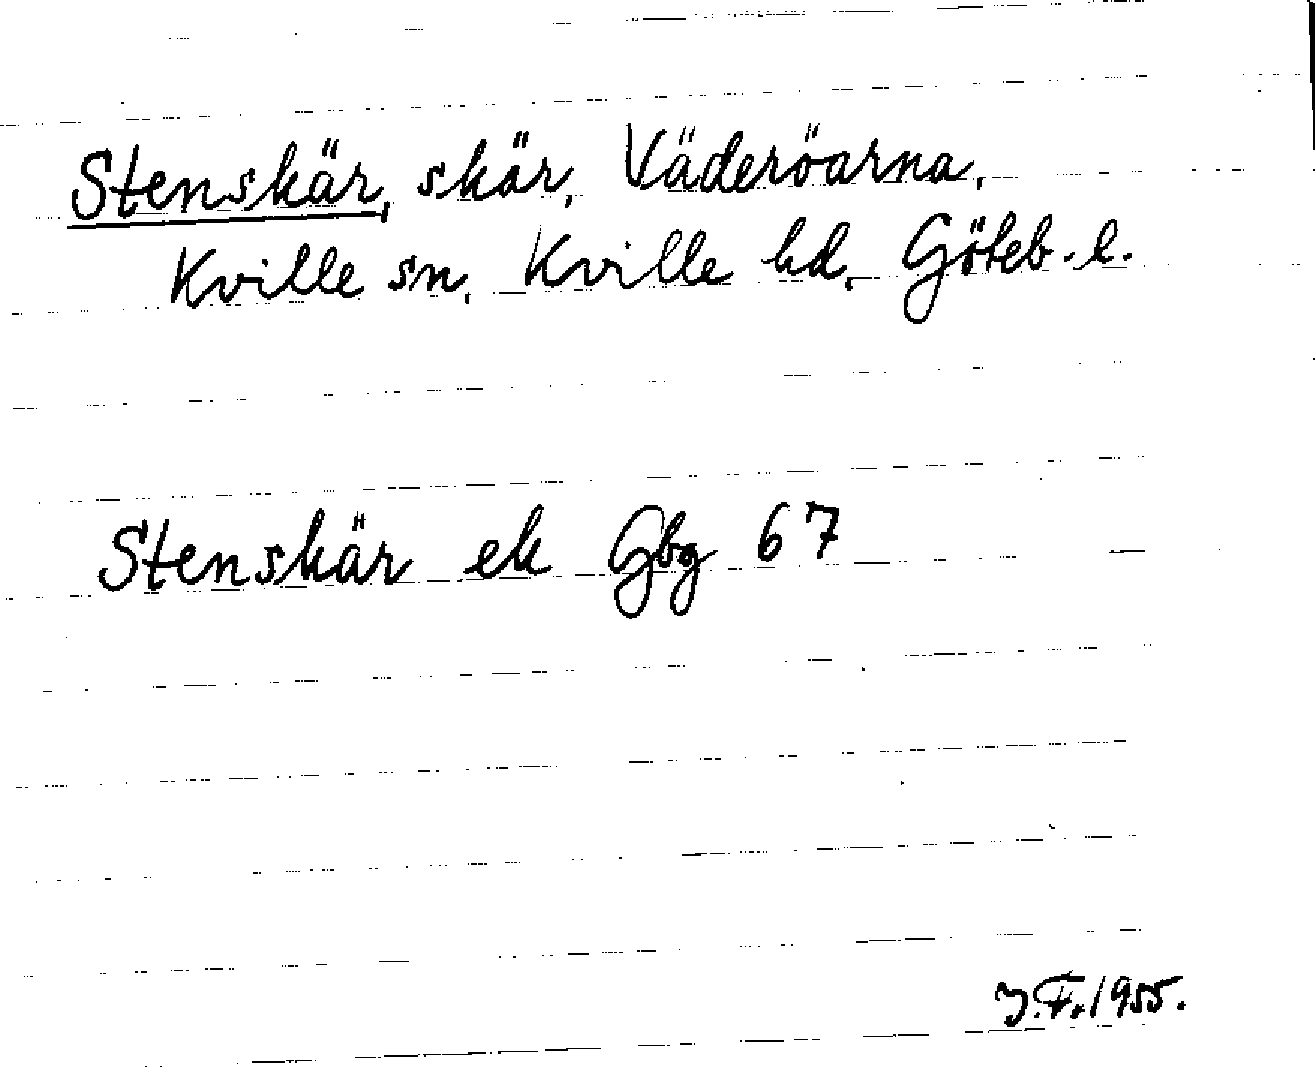 Stenskär, skär, Väderöarna,
Kville sn, Kville hd, Göteb. l.
Stenskär ek Gbg 67
J.F. 1955.